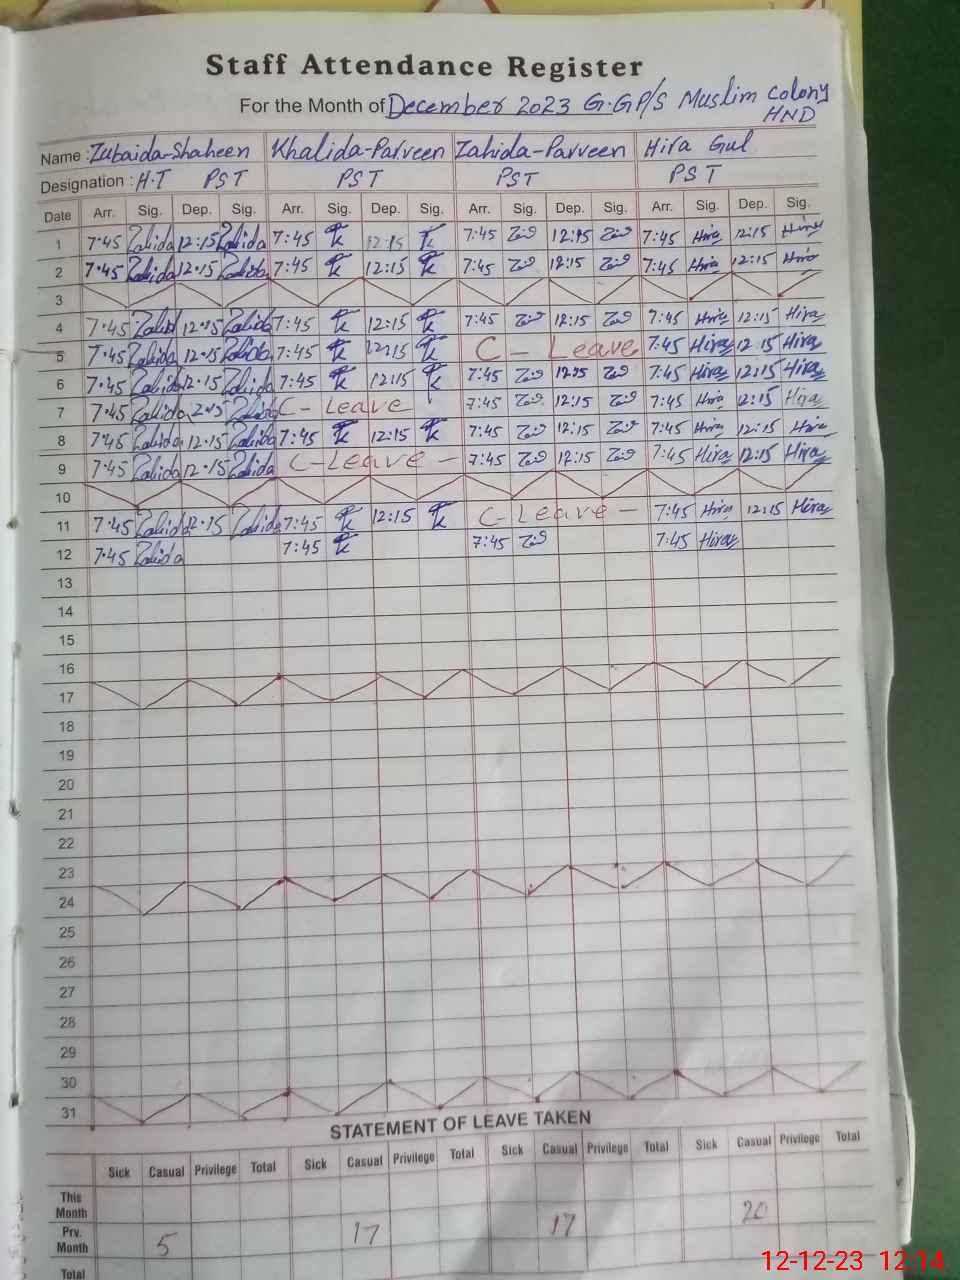 Staff Attendance Register
For the Month of December 2023 G.GP/S Muslim colony
HND
Name : Zubaida-Shaheen Khalida-Parveen Zahida-Parveen Hira Gul
Designation : H.T PST PST PST PST
Date Arr. Sig. Dep. Sig. Arr. Sig. Dep. Sig. Arr. Sig. Dep. Sig. Arr. Sig. Dep. Sig.
1 7·45 12:15 7:45 12:15 7:45 12:15 7:45 Hira 12:15 Hira
2 7·45 12·15 7:45 12:15 7:45 12:15 7:45 Hira 12:15 Hira
3
4 7·45 12·15 7:45 12:15 7:45 12:15 7:45 Hira 12:15 Hira
5 7·45 12·15 7:45 12:15 C - Leave 7:45 Hira 12:15 Hira
6 7·45 12·15 7:45 12:15 7:45 12:15 7:45 Hira 12:15 Hira
7 7·45 C - Leave 7:45 12:15 7:45 Hira 12:15 Hira
8 7·45 12·15 7:45 12:15 7:45 12:15 7:45 Hira 12:15 Hira
9 7·45 12·15 C - Leave - 7:45 12:15 7:45 Hira 12:15 Hira
10
11 7·45 7:45 12:15 C - Leave - 7:45 Hira 12:15 Hira
12 7·45 7:45 7:45 7:45 Hira
13
14
15
16
17
18
19
20
21
22
23
24
25
26
27
28
29
30
31
STATEMENT OF LEAVE TAKEN
Sick Casual Privilege Total Sick Casual Privilege Total Sick Casual Privilege Total Sick Casual Privilege Total
This Month
Prv. Month 5 17 17 20
Total
12-12-23 12:14